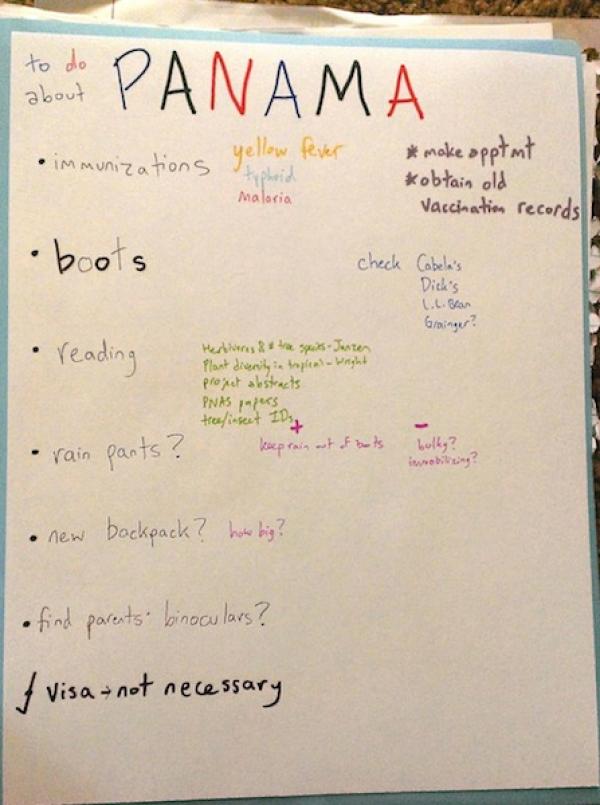 to do
about
PANAMA
• immunizations
yellow fever
typhoid
Malaria
* make apptmt
* obtain old
vaccination records
• boots
check Cabela's
Dick's
L.L. Bean
Grainger?
• reading
Herbivores & # tree species - Janzen
Plant diversity in tropical - Wright
project abstracts
PNAS papers
tree/insect IDs
• rain pants?
+
keep rain out of boots
-
bulky?
immobilizing?
• new backpack? how big?
• find parents' binoculars?
√ Visa → not necessary